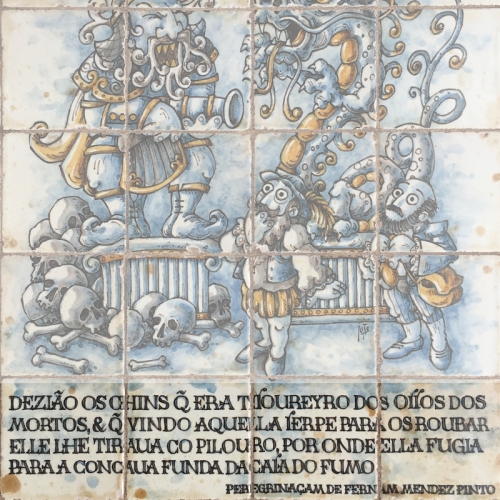 DEZIÃO OS CHINS Q̃ ERA THOUREYRO DOS OſſOS DOS
MORTOS, & Q̃ VINDO AQUELLA ſERPE PARA OS ROUBAR
ELLE LHE TIRAUA CO PILOURO, POR ONDE ELLA FUGIA
PARA A CONCAUA FUNDA DA CAſA DO FUMO
PEREGRINAÇAM DE FERNAM MENDEZ PINTO